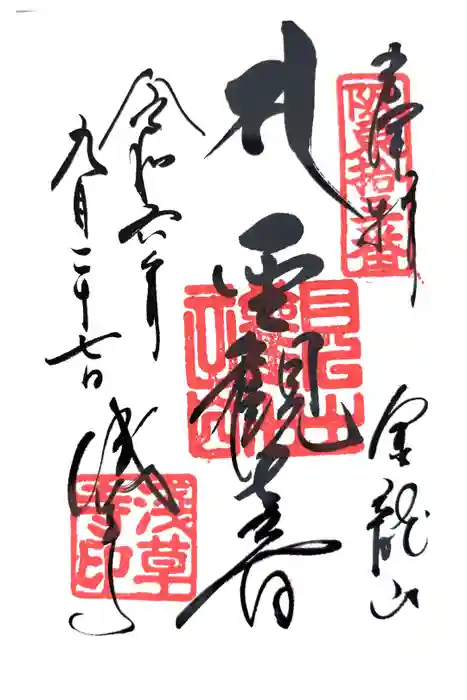 奉拝
阪東拾三番
金龍山
聖観音
浅草寺
浅草寺印
令和六年
九月二十七日